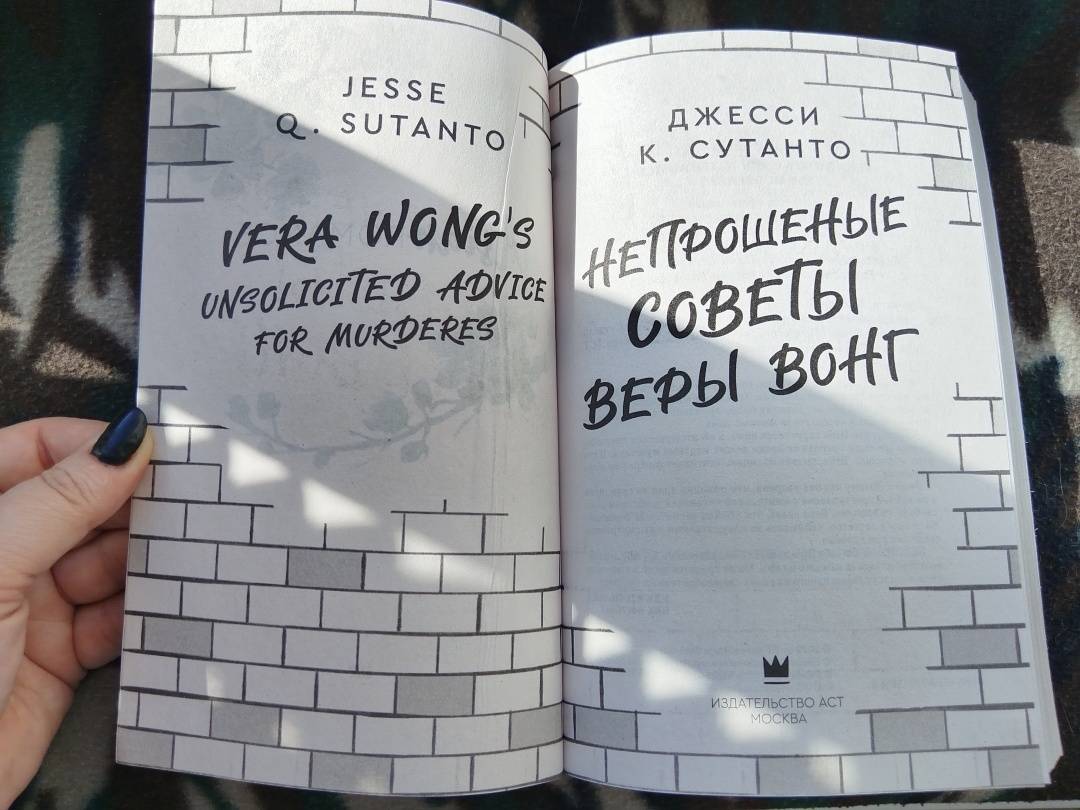 JESSE
Q. SUTANTO
VERA WONG'S
UNSOLICITED ADVICE
FOR MURDERES
ДЖЕССИ
К. СУТАНТО
НЕПРОШЕНЫЕ
СОВЕТЫ
ВЕРЫ ВОНГ
ИЗДАТЕЛЬСТВО АСТ
МОСКВА